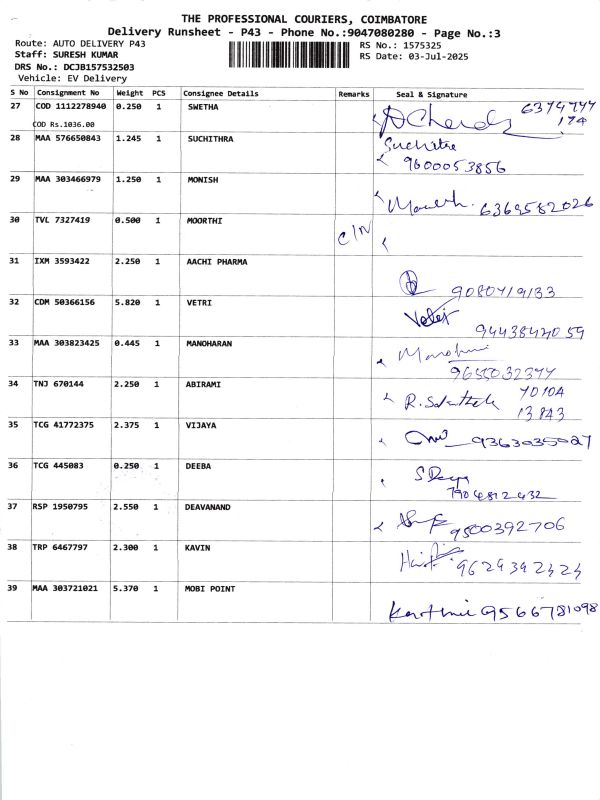 THE PROFESSIONAL COURIERS, COIMBATORE
Delivery Runsheet - P43 - Phone No.:9047080280 - Page No.:3
Route: AUTO DELIVERY P43
Staff: SURESH KUMAR
DRS No.: DCJB157532503
Vehicle: EV Delivery
RS No.: 1575325
RS Date: 03-Jul-2025
S No Consignment No Weight PCS Consignee Details Remarks Seal & Signature
27 COD 1112278940 0.250 1 SWETHA
COD Rs.1036.00
28 MAA 576650843 1.245 1 SUCHITHRA Suchitra
9600053856
29 MAA 303466979 1.250 1 MONISH 6369582026
30 TVL 7327419 0.500 1 MOORTHI C/N
31 IXM 3593422 2.250 1 AACHI PHARMA 9080719133
32 CDM 50366156 5.820 1 VETRI Vetri
9443842059
33 MAA 303823425 0.445 1 MANOHARAN
9655032344
34 TNJ 670144 2.250 1 ABIRAMI 70104
13843
35 TCG 41772375 2.375 1 VIJAYA 9363035027
36 TCG 445083 0.250 1 DEEBA
7904812432
37 RSP 1950795 2.550 1 DEAVANAND 9500392706
38 TRP 6467797 2.300 1 KAVIN
39 MAA 303721021 5.370 1 MOBI POINT 9566781098